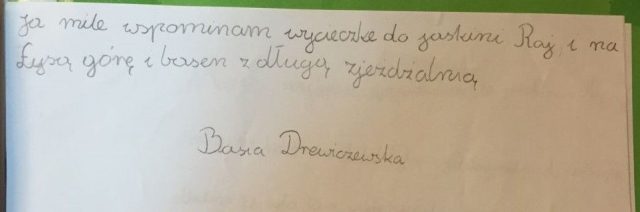 Ja mile wspominam wycieczkę do jaskini Raj i na
Łysą górę i basen z długą zjeżdżalnią
Basia Drewczewska